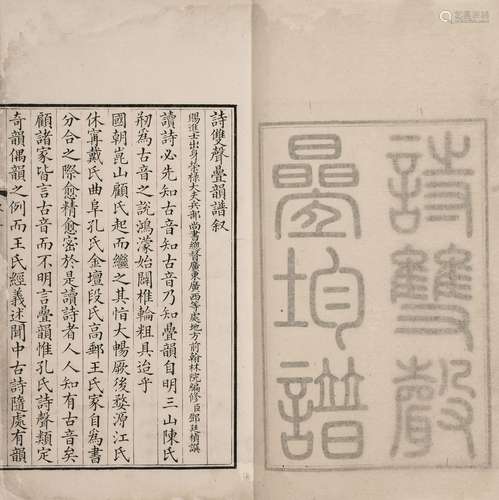 詩雙聲
疊均譜
詩雙聲疊韻譜叙
賜進士出身榮祿大夫兵部尚書總督廣東廣西等處地方前翰林院編修臣鄧廷楨譔
讀詩必先知古音知古音乃知疊韻自明三山陳氏
剏為古音之說鴻濛始闢椎輪粗具迨乎
國朝崑山顧氏起而繼之其恉大暢厥後婺源江氏
休寧戴氏曲阜孔氏金壇段氏高郵王氏家自為書
分合之際愈精愈密於是讀詩者人人知有古音矣
顧諸家皆言古音而不明言疊韻惟孔氏詩聲類定
奇韻偶韻之例而王氏經義述聞中古詩隨處有韻